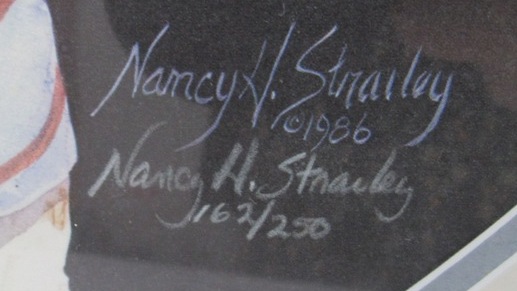 Nancy H. Strailey
©1986
Nancy H. Strailey
162/250